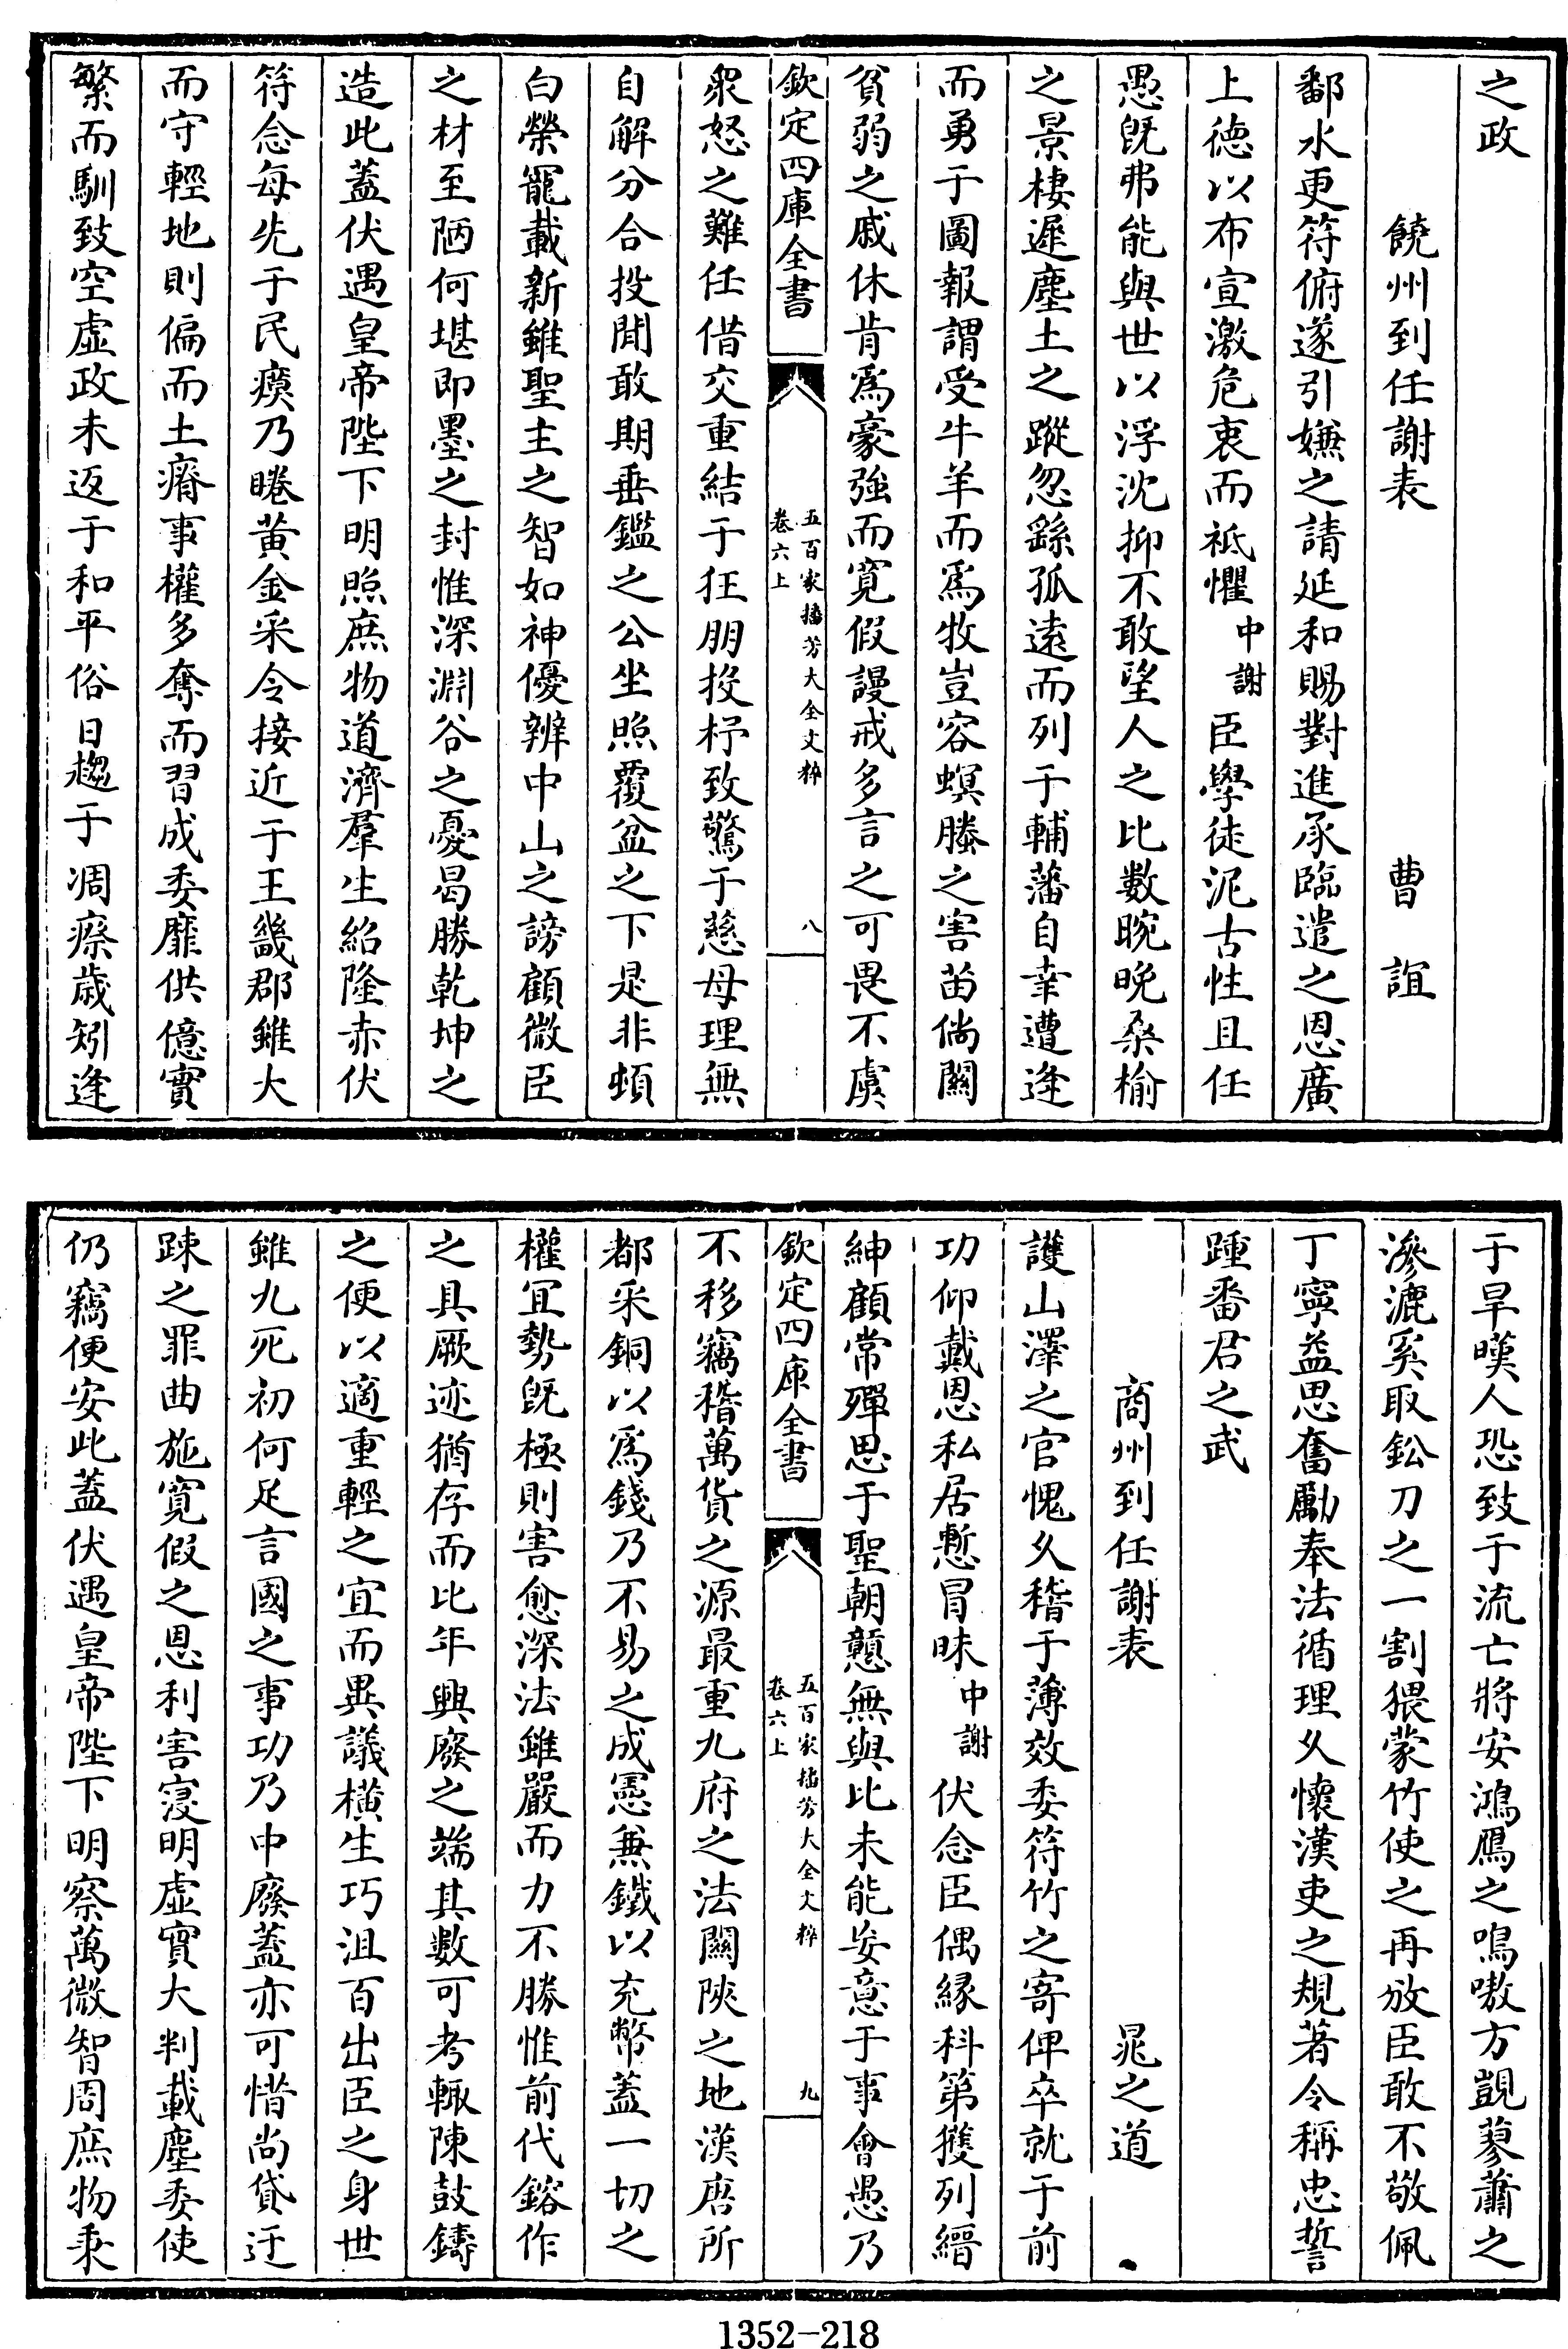 之政
饒州到任謝表 曹誼
鄱水更符俯遂引嫌之請延和賜對進承臨遣之恩廣
上徳以布宣激危衷而祗懼中謝臣學徒泥古性且任
愚既弗能與世以浮沈抑不敢望人之比數晼晚桑榆
之景棲遲塵土之蹤忽繇孤遠而列于輔藩自幸遭逢
而勇于圖報謂受牛羊而爲牧豈容螟螣之害苗倘關
貧弱之戚休肯爲豪強而寛假謾戒多言之可畏不虞
欽定四庫全書
五百家播芳大全文粹
卷六上
八
衆怒之難任借交重結于狂朋投杼致驚于慈母理無
自解分合投閒敢期垂鑑之公坐照覆盆之下是非頓
白榮寵載新雖聖主之智如神優辨中山之謗顧微臣
之材至陋何堪即墨之封惟深淵谷之憂曷勝乾坤之
造此蓋伏遇皇帝陛下明照庶物道濟羣生紹隆赤伏
符念每先于民瘼乃睠黃金采令接近于王畿郡雖大
而守輕地則偏而土瘠事權多奪而習成委靡供億實
繁而馴致空虚政未返于和平俗日趨于凋瘵歳矧逢
于旱暵人恐致于流亡將安鴻鴈之鳴嗷方覬蓼蕭之
滲漉奚取鉛刀之一割猥蒙竹使之再放臣敢不敬佩
丁寧益思奮勵奉法循理乆懷漢吏之規著令稱忠誓
踵番君之武
商州到任謝表 晁之道
護山澤之官愧乆稽于薄效委符竹之寄俾卒就于前
功仰戴恩私居慙冒昧中謝伏念臣偶縁科第獲列縉
紳顧常殫思于聖朝戇無與比未能妄意于事會愚乃
欽定四庫全書
五百家播芳大全文粹
卷六上
九
不移竊稽萬貨之源最重九府之法關陜之地漢唐所
都采銅以爲錢乃不易之成憲兼鐵以充幣蓋一切之
權宜勢既極則害愈深法雖嚴而力不勝惟前代鎔作
之具厥迹猶存而比年興廢之端其數可考輒陳鼓鑄
之便以適重輕之宜而異議橫生巧沮百出臣之身世
雖九死初何足言國之事功乃中廢蓋亦可惜尚貸迂
踈之罪曲施寛假之恩利害寖明虚實大判載塵委使
仍竊便安此蓋伏遇皇帝陛下明察萬微智周庶物秉
1352-218